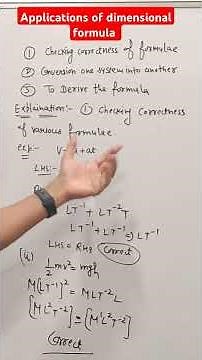 Applications of dimensional
formula
① Checking correctness of formulae
② Conversion one system into another
③ To Derive the formula
Explaination:- ① Checking Correctness
of various formulae.
LHS:-
LT⁻¹ + LT⁻²T
LT⁻¹ + LT⁻¹ ⇒ LT⁻¹
LHS = RHS Correct
½mv² = mgh
M[LT⁻¹]² = MLT⁻²L
[ML²T⁻²] = [M¹L²T⁻²]
Correct